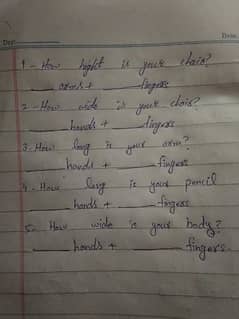 Day: Date:
1 - How hight is your chair?
___ arms + ___ fingers
2 - How wide is your chair?
___ hands + ___ fingers
3 - How long is your arm?
___ hands + ___ fingers
4 - How long is your pencil
___ hands + ___ fingers
5 - How wide is your body?
___ hands + ___ fingers.